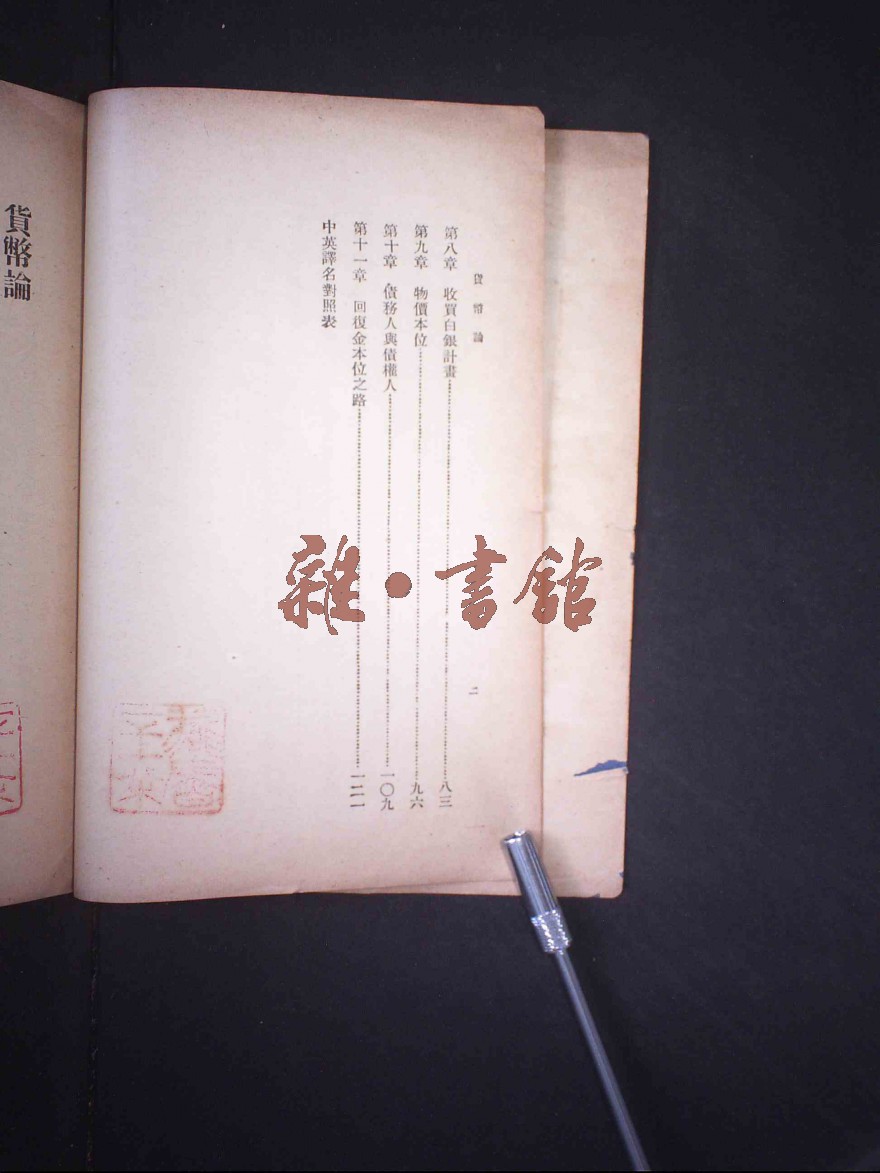 貨幣論
二
第八章 收買白銀計畫……八三
第九章 物價本位……九六
第十章 債務人與債權人……一〇九
第十一章 回復金本位之路……一二一
中英譯名對照表
貨幣論
雜·書館